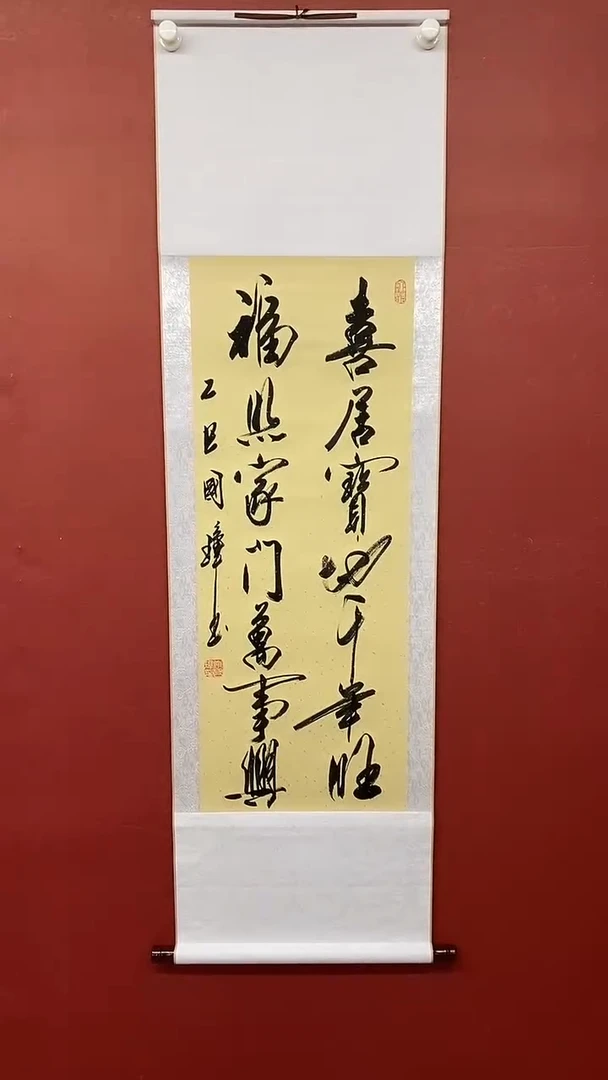 喜居寶地千年旺
福照家門萬事興
乙巳國璋書